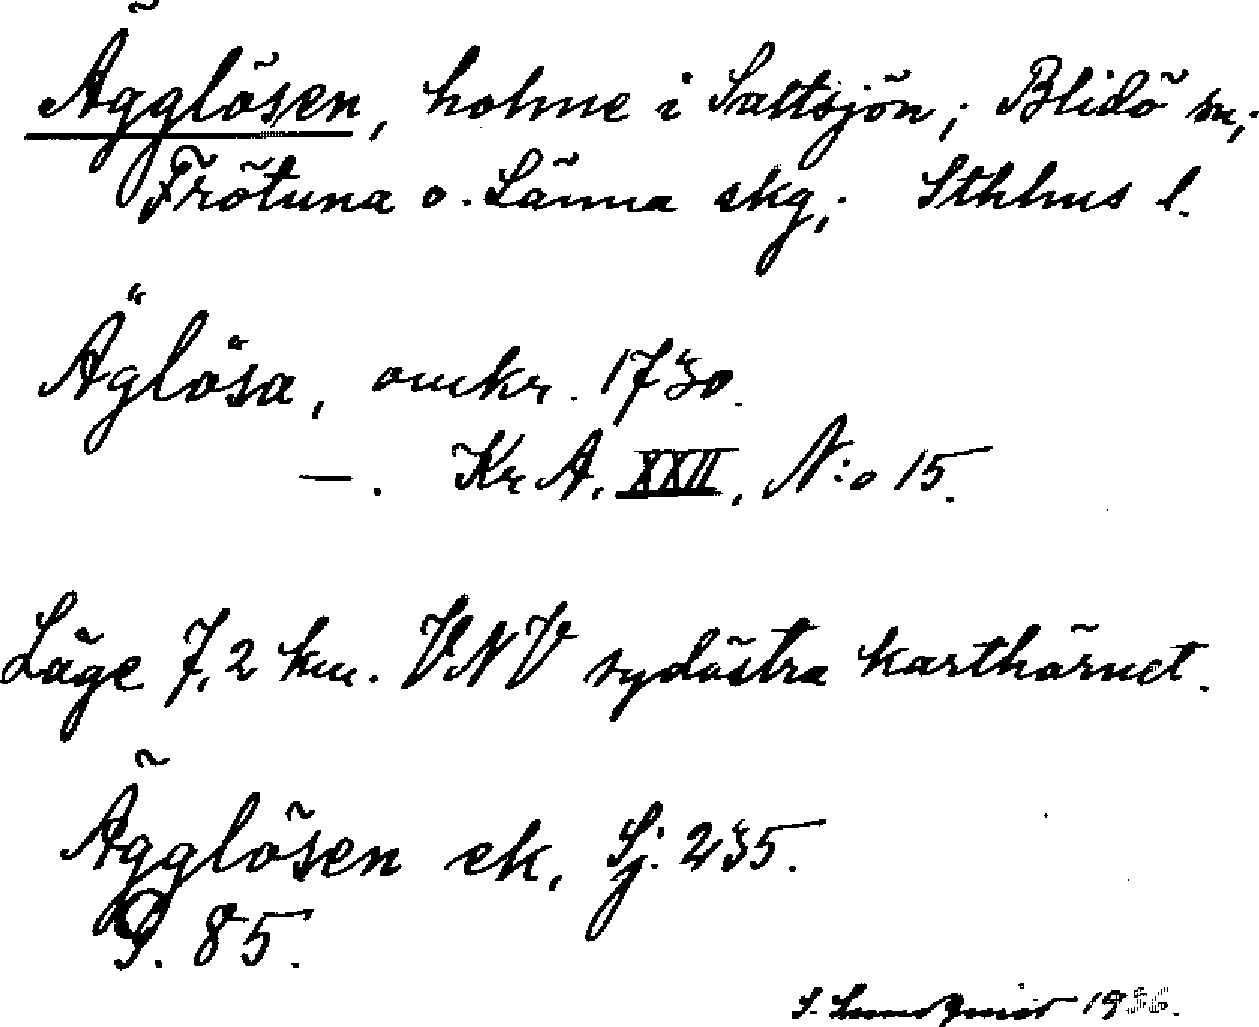 Ägglösen, holme i Saltsjön; Blidö sn,
Frötuna o. Länna skg; Sthlms l.
Äglösa, omkr. 1730.
—. Kr A. XXII, N:o 15.
Läge 7,2 km. VNV sydöstra karthörnet.
Ägglösen ek, Sj. 235.
S. 85.
1936.